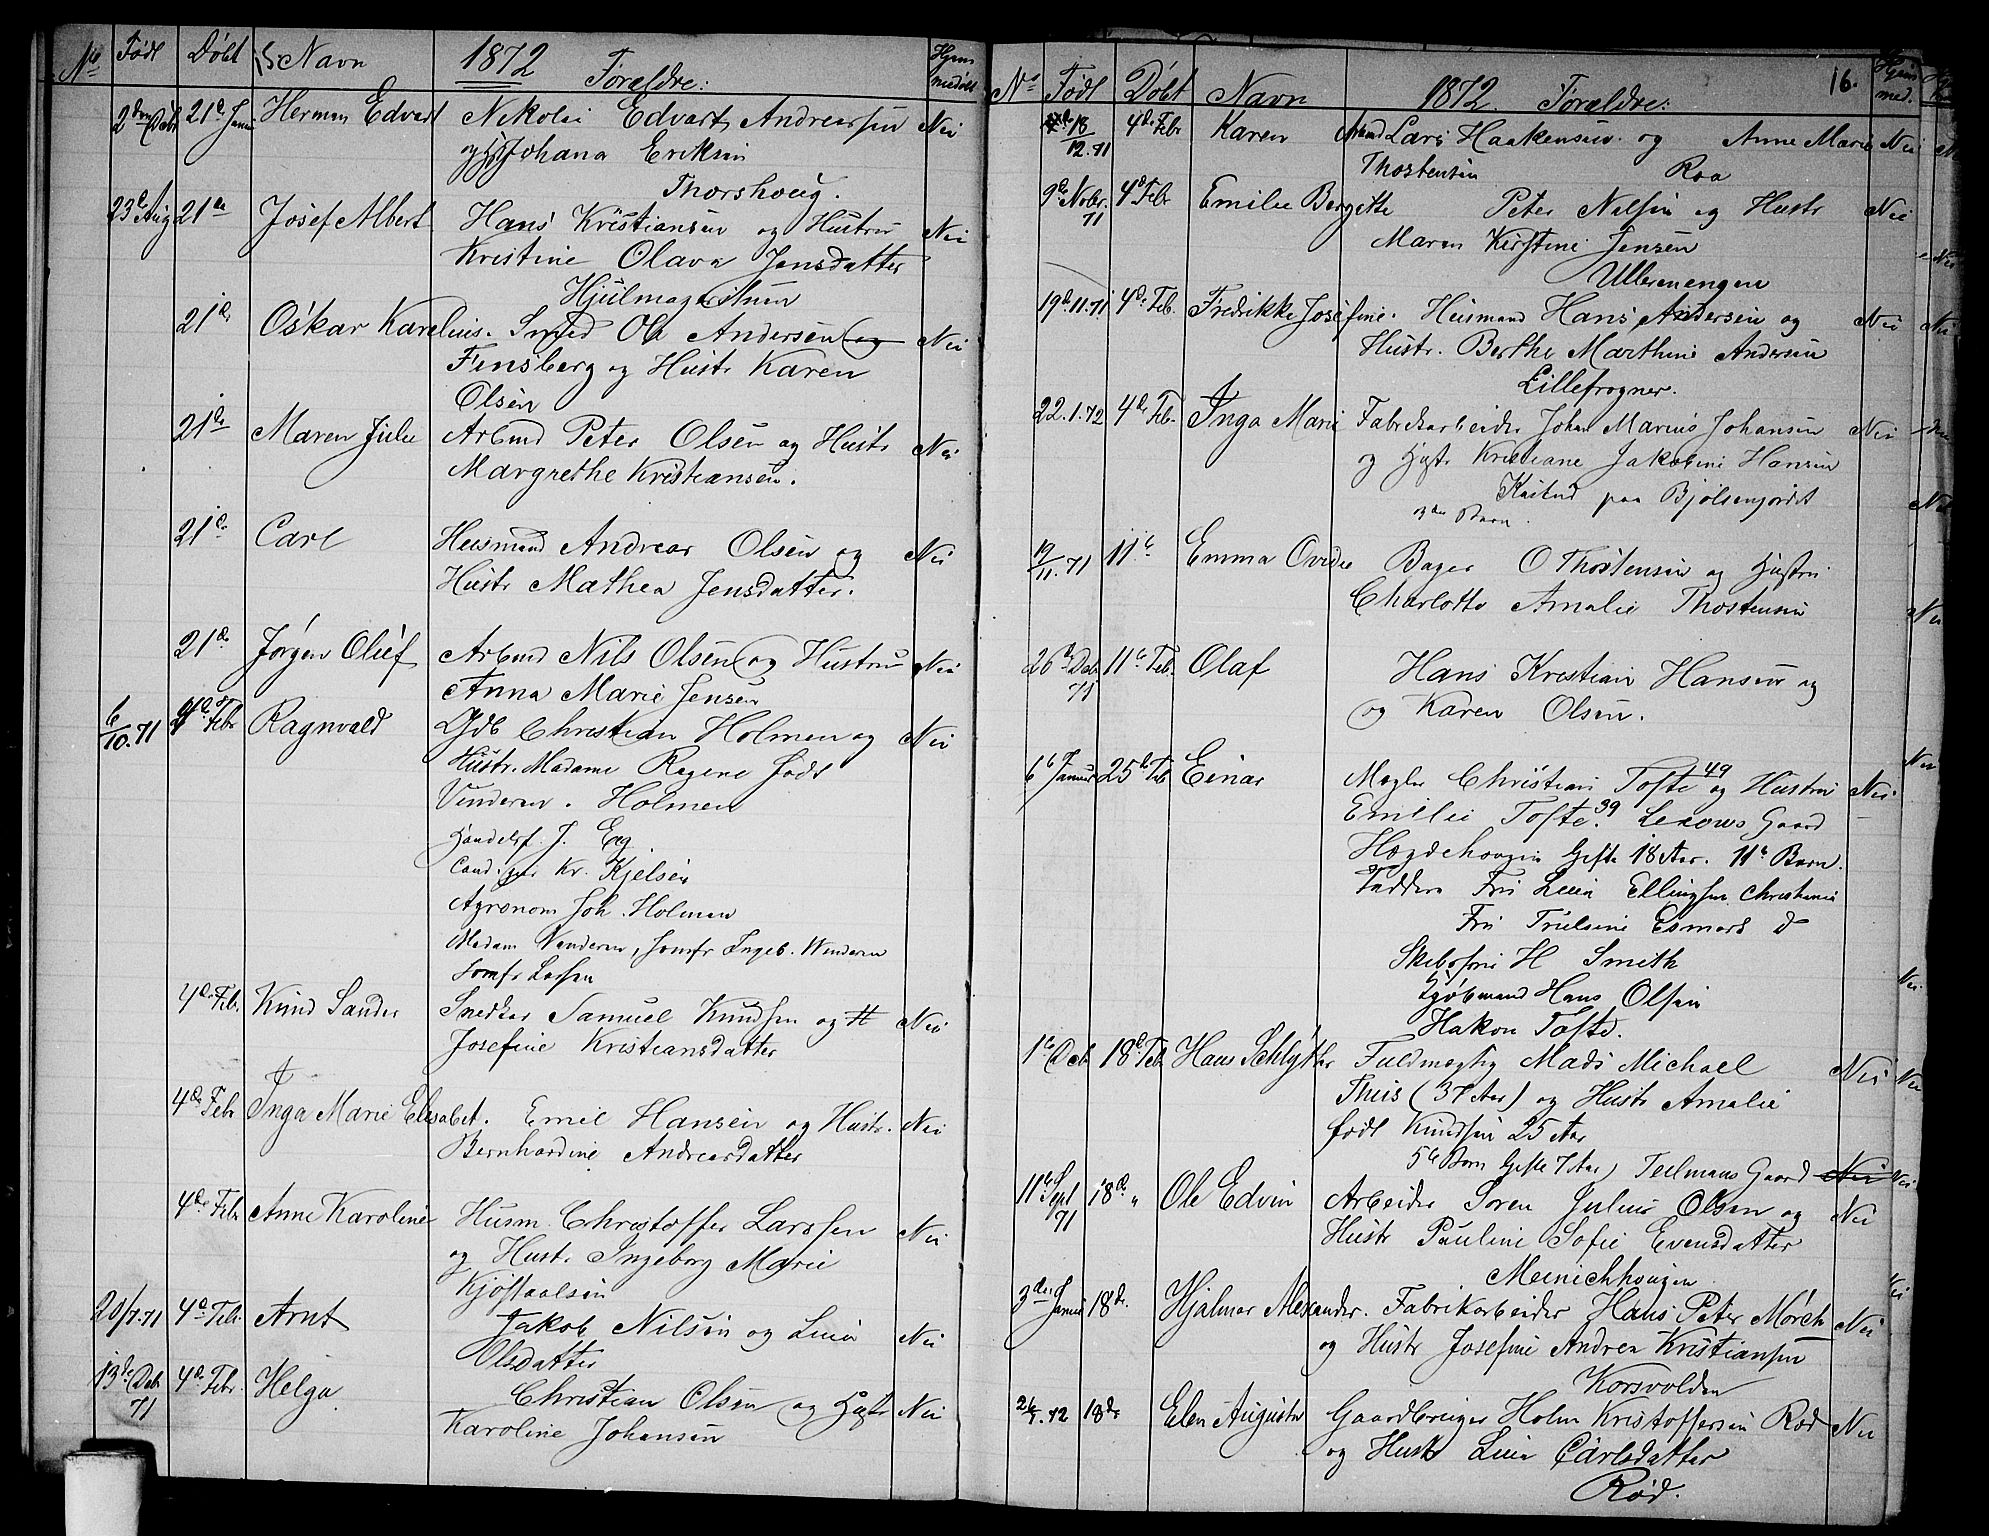 No Født Døbt Navn 1872 Forældre: Hjem med.
2den Debr 21de Janur Herman Edvart Nikolai Edvart Andreassen Nei
og Johana Eriksen
Thorshoug.
23de Aug 21de Josef Albert Hans Kristiansen og Hustru Nei
Kristine Olava Jensdatter
Hjulmagerstuen
21de Oskar Karelius. Smed Ole Andersen og Nei
Finsberg og Hustr Karen
Olsen
21de Maren Julie Arbmd Peter Olsen og Hustr Nei
Margrethe Kristiansen.
21de Carl Husmand Andreas Olsen og Nei
Hustr Mathea Jensdatter.
21de Jørgen Oluf Arbmd Nils Olsen og Hustru Nei
Anna Marie Jensen
6/10.71 4de Febr Ragnvald Gdb Christian Holmen og Nei
Hustr. Madame Regine født
Vinderen. Holmen
Handelsf. J. Eeg
Cand. jur Kr. Kjelsen
Agronom Joh. Holmen
Madam Venderen, Jomfr Ingeb. Winderen
Jomfr Larsen
4de Feb. Knud Sander Snedker Samuel Knudsen og H Nei
Josefine Kristiansdatter
4de Febr Inga Marie Elisabet. Emil Hansen og Hustr. Nei
Bernhardine Andreasdatter
4de Febr Anne Karoline Husm. Christoffer Larssen Nei
og Hustr. Ingeborg Marie
Kjøstaalsen
20/7.71 4de Febr. Arnt Jakob Nilsen og Lina Nei
Olsdatter
13de Deb 71 4de Febr. Helga Christian Olsen og Hustr Nei
Karoline Johansen
No Født Døbt Navn 1872 Forældre: 16. Hjem med.
18/12.71 4de Febr Karen Arbmd Lars Haakensen og Anne Marie Nei
Thostensen Roa
9de Nobr. 71 4de Febr Emilie Bergitte Peter Nilsen og Hustr Nei
Maren Kirstine Jensen
Ullerenengen
19de 11.71 4de Feb. Fredrikke Josefine. Husmand Hans Andersen og Nei
Hustr. Berthe Marthine Andersen
Lillefrogner.
22.1.72 4de Feb. Inga Marie Fabrikarbeider Johan Marius Johansen Nei
og Hustr Kristiane Jakobine Hansen
paa Bjølsenjordet
3die Barn.
19/11.71 11te Emma Ovidie Bager O Thostensen og Hustru
Charlotte Amalie Thostensen
26de Deb. 71 11te Feb. Olaf Hans Kristian Hansen og
og Karen Olsen.
6te Januar 25de Feb Einar Mægler Christian Tofte 49 og Hustru Nei
Emilie Tofte. 39 Lexows Gaard
Hægdehougen Gifte 18 Aar. 11te Barn.
Faddere Fru Lina Ellingsen Christiania
Fru Trulsine Esmark d
Skibsfører H Smith
Kjøbmand Hans Olsen
Hakon Tofte.
1te Deb 18de Feb Hans Schlytter Fuldmægtig Mads Michael Nei
Thiis (37 Aar) og Hustr Amalie
født Knudsen 25 Aar
5te Barn Gifte 7 Aar) Teilmans Gaard Nei
11te Sept 71 18de " Ole Edvin Arbeider Søren Julius Olsen og Nei
Hustr Pauline Sofie Evensdatter
Meinichhougen
3die Janur 18de. Hjalmar Alexander. Fabrikarbeider Hans Peter Mørch Nei
og Hustr Josefine Andrea Kristiansen
Korsvolden
1.72 18de Elen Augusta Gaardbruger Holm Kristoffersen Rød Nei
og Hustr Lina Carlsdatter
Rød.